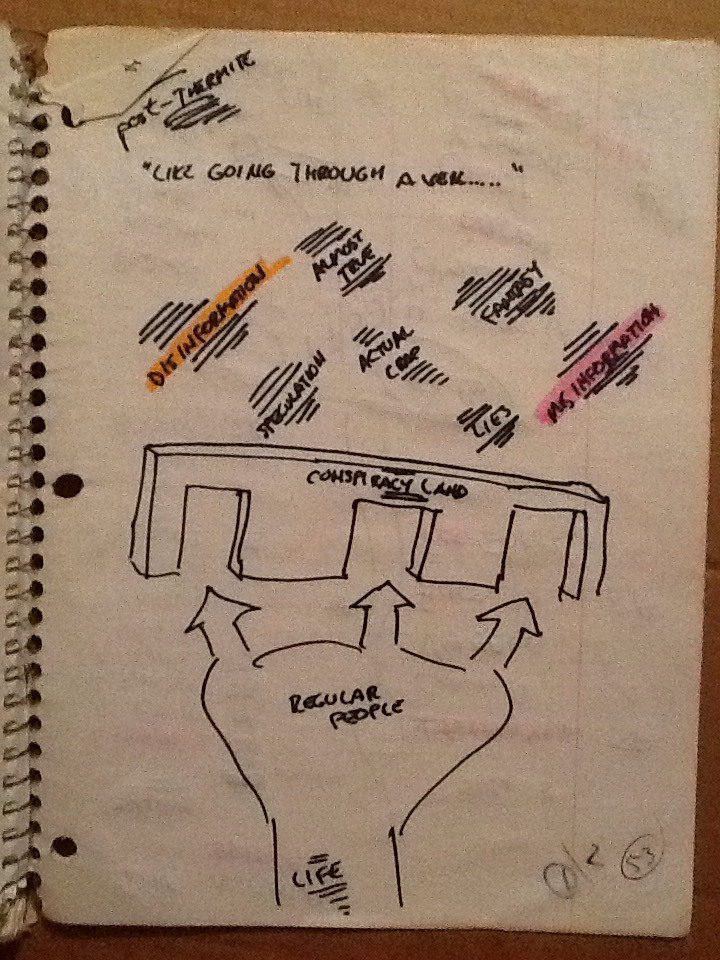 POST-THERMITE
"LIKE GOING THROUGH A VEIL....."
ALMOST
TRUE
DISINFORMATION
FANTASY
ACTUAL
CRAP
MISINFORMATION
SPECULATION
LIES
CONSPIRACY LAND
REGULAR
PEOPLE
LIFE
53